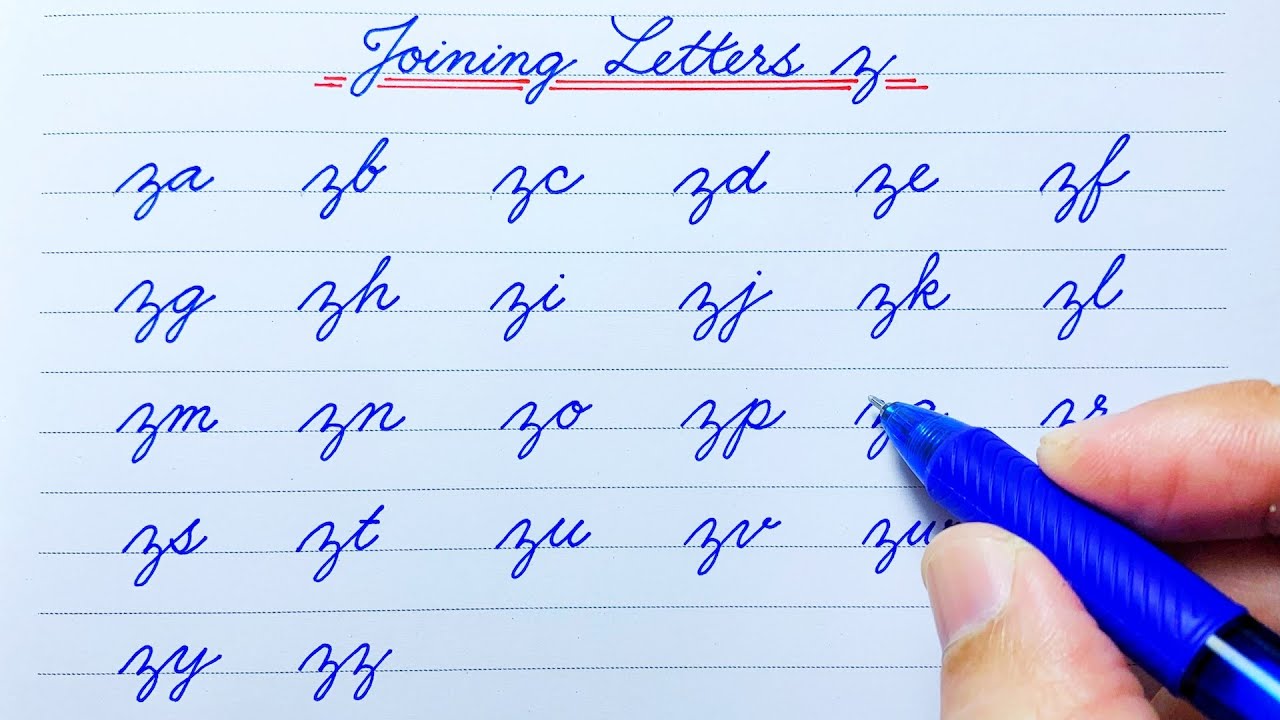 Joining Letters z
za zb zc zd ze zf
zg zh zi zj zk zl
zm zn zo zp zr
zs zt zu zv
zy zz